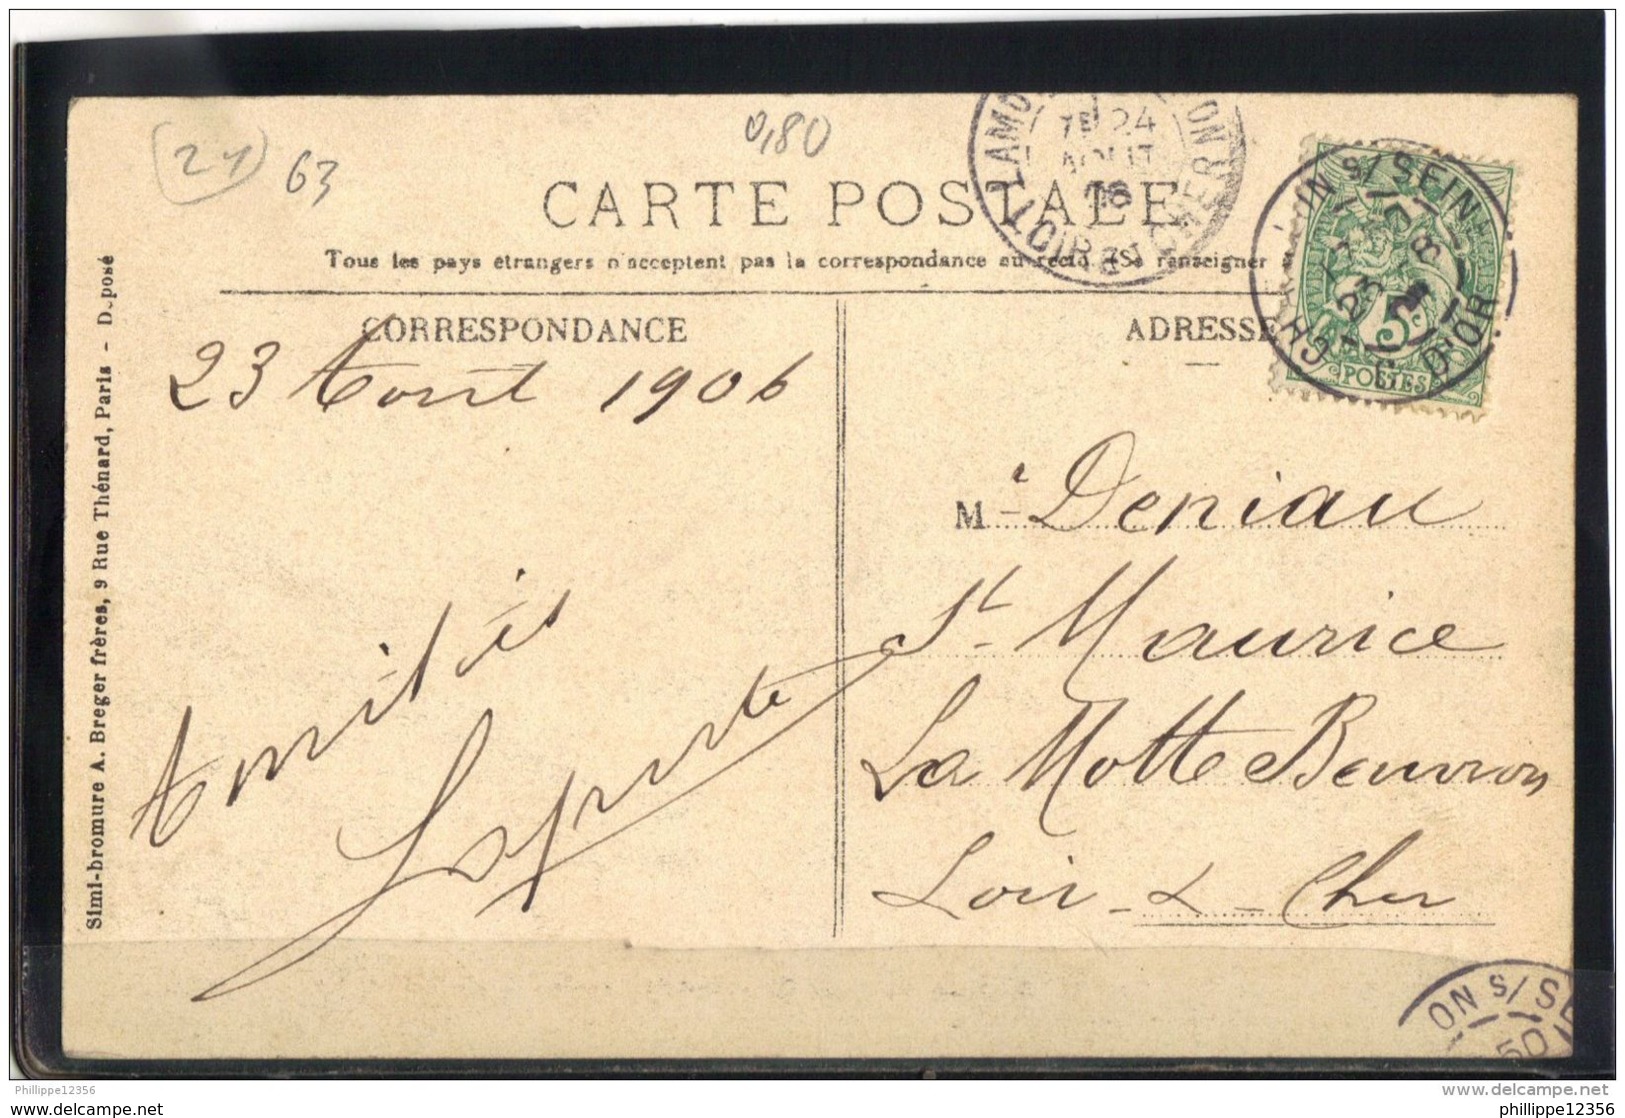 (21) 63
0,80
LAMO
ON
LOIR & CHER
24
AOUT
06
CARTE POSTALE
Tous les pays étrangers n'acceptent pas la correspondance au recto (Se renseigner
CH IN S/ SEINE
D'OR
23
5c
POSTES
CORRESPONDANCE
ADRESSE
23 Aout 1906
Mr Deniau
St Maurice
La Motte Beuvron
Loir & Cher
Amitiés
Simi-bromure A. Breger frères, 9 Rue Thénard, Paris - Déposé
ON S/ SE
50
Phillippe12356
www.delcampe.net
philippe12356
philippe12356